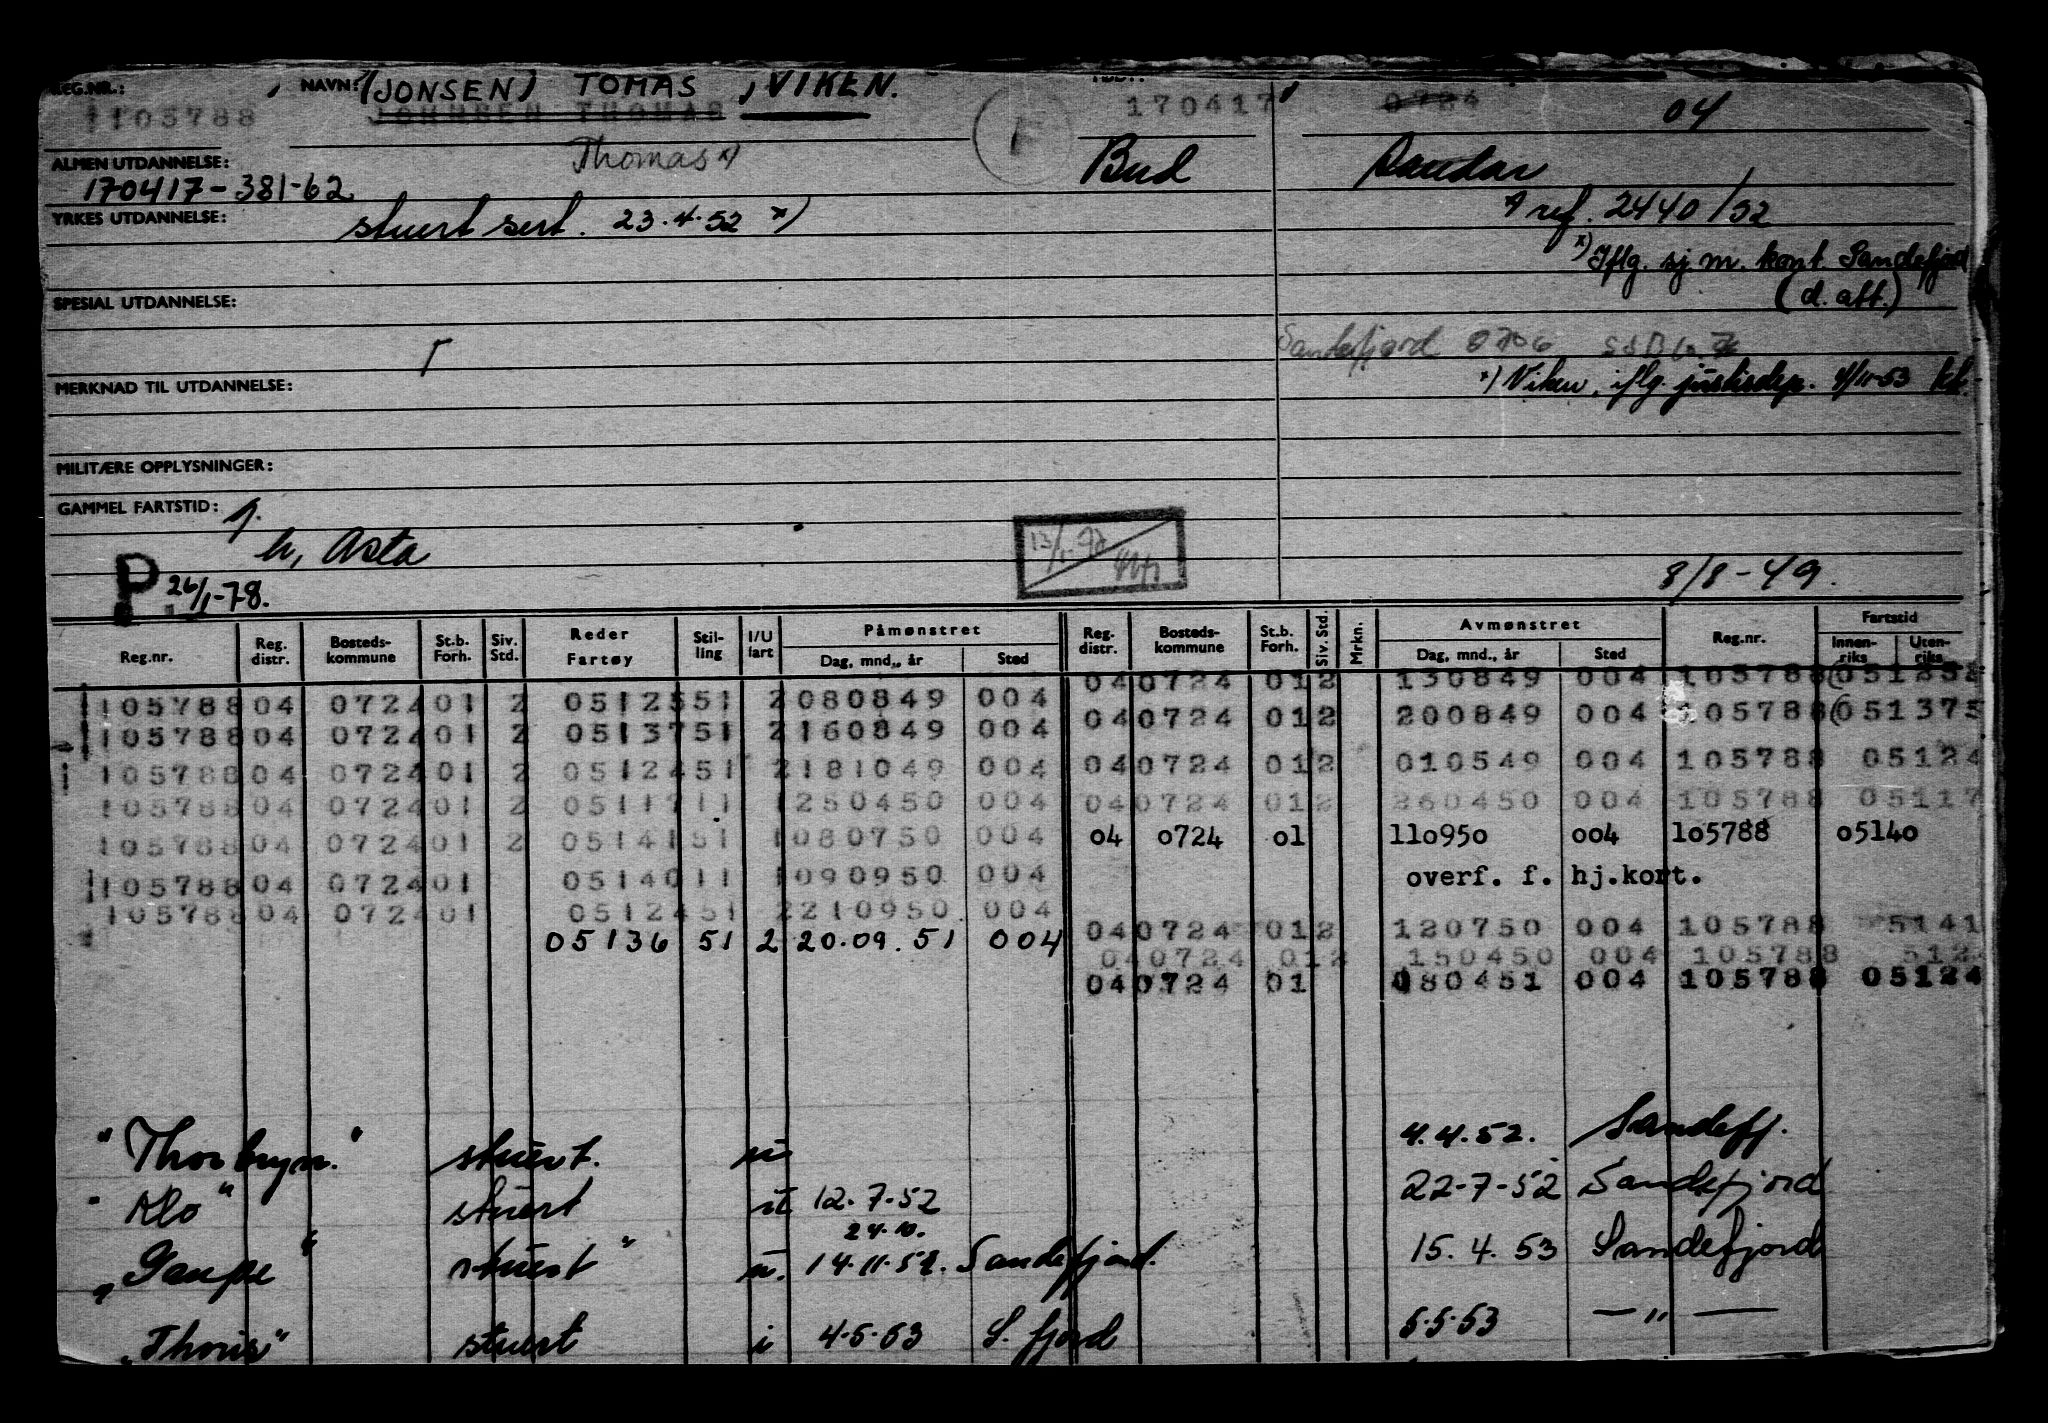 REG.NR.: NAVN: (JONSEN) TOMAS, VIKEN.
105788 JOHNSEN THOMAS 170417 0724 04
Thomas x) Bud Sandar
ALMEN UTDANNELSE:
170417-381-62
YRKES UTDANNELSE:
stuert sert. 23.4.52 x) ref. 2440/52
x) Iflg. sj.m. kont. Sandefjord
(d. aft.)
SPESIAL UTDANNELSE:
Sandefjord 0706
MERKNAD TIL UTDANNELSE:
x) Viken, iflg. justisdep. 4/11-53
MILITÆRE OPPLYSNINGER:
GAMMEL FARTSTID:
h, Asta
P. 26/1-78. 8/8-49.
Reg.nr. Reg. distr. Bosteds-kommune St.b. Forh. Siv. Std. Reder Fartøy Stil-ling I/U fart Påmønstret Dag, mnd., år Sted Reg. distr. Bosteds-kommune St.b. Forh. Siv. Std. Mrkn. Avmønstret Dag, mnd., år Sted Reg.nr. Fartstid Innen-riks Uten-riks
040724 012 130849 004 105788
105788 04 0724 01 2 05125 51 2 080849 004
040724 012 200849 004 105788 051375
105788 04 0724 01 2 05137 51 2 160849 004
105788 04 0724 01 2 05124 51 2 181049 004 040724 012 010549 004 105788 05124
105788 04 0724 01 2 05117 11 1 250450 004 040724 012 260450 004 105788 05117
105788 04 0724 01 2 05141 51 1 080750 004 04 0724 01 110950 004 105788 05140
105788 04 0724 01 05140 11 1 090950 004 overf. f. hj.kort.
105788 04 0724 01 05124 51 2 210950 004
040724 012 120750 004 105788 5141
05136 51 2 20.09.51 004
040724 012 150450 004 105788 512
040724 01 080451 004 105788 05124
"Thorbryn." stuert. u 4.4.52. Sandefj.
"Klo" stuert ut 12.7-52 22-7-52 Sandefjord
24.10.
"Gaupe" stuert" u. 14.11.52. Sandefjord. 15.4.53 Sandefjord
"Thoris" stuert i 4.5.53 S.fjord 5.5.53 — " —